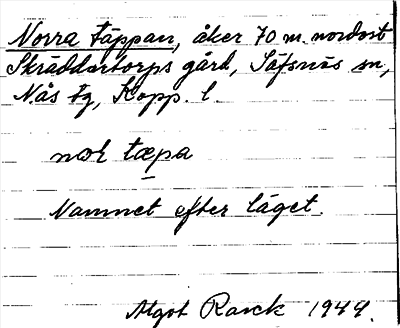 Norra täppan, åker 70 m. nordost
Skräddartorps gård, Säfsnäs sn,
Nås tg, Kopp. l.
nok tæpa
Namnet efter läget.
Algot Rarck 1944.